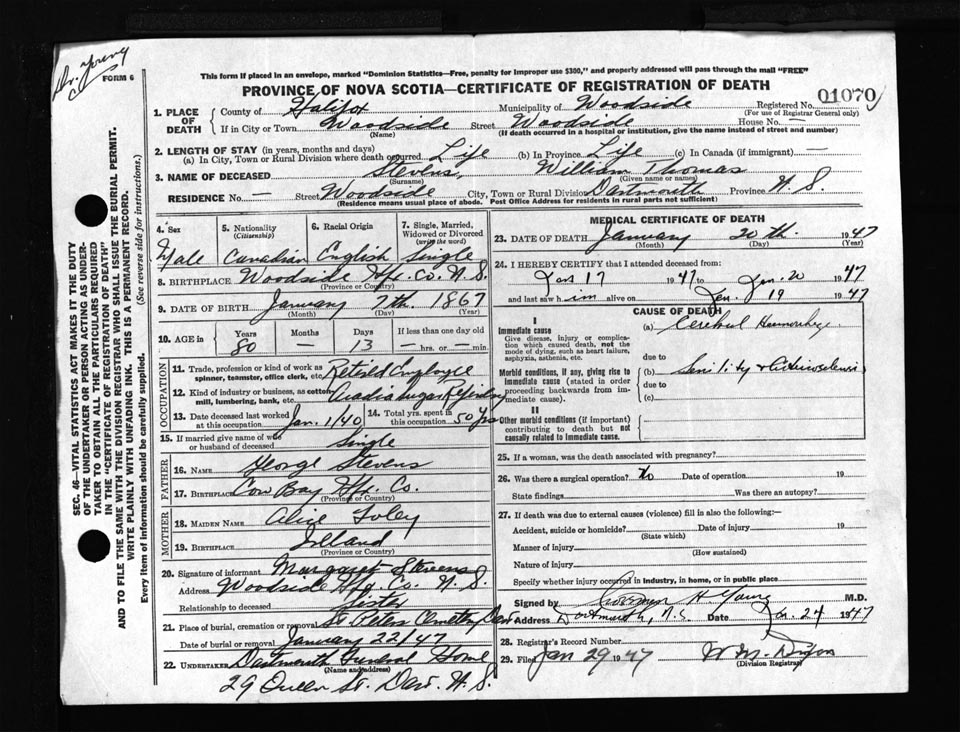 Dr. Young
FORM 6
This form if placed in an envelope, marked "Dominion Statistics—Free, penalty for improper use $300," and properly addressed will pass through the mail "FREE"
PROVINCE OF NOVA SCOTIA—CERTIFICATE OF REGISTRATION OF DEATH
01070
1. PLACE OF DEATH County of Halifax Municipality of Woodside Registered No.
(For use of Registrar General only)
If in City or Town Woodside Street Woodside House No. —
(Name) (If death occurred in a hospital or institution, give the name instead of street and number)
2. LENGTH OF STAY (in years, months and days)
(a) In City, Town or Rural Division where death occurred Life (b) In Province Life (c) In Canada (if immigrant) —
3. NAME OF DECEASED Stevens, William Thomas
(Surname) (Given name or names)
RESIDENCE No. — Street Woodside City, Town or Rural Division Dartmouth Province N.S.
(Residence means usual place of abode. Post Office Address for residents in rural parts not sufficient)
4. Sex 5. Nationality (Citizenship) 6. Racial Origin 7. Single, Married, Widowed or Divorced (write the word)
Male Canadian English Single
8. BIRTHPLACE Woodside Hfx. Co. N.S.
(Province or Country)
9. DATE OF BIRTH January 7th. 1867
(Month) (Day) (Year)
10. AGE in Years Months Days If less than one day old
80 — 13 — hrs. or — min.
OCCUPATION
11. Trade, profession or kind of work as spinner, teamster, office clerk, etc. Retired Employee
12. Kind of industry or business, as cotton mill, lumbering, bank, etc. Acadia Sugar Refinery
13. Date deceased last worked at this occupation Jan. 1/40 14. Total yrs. spent in this occupation 50 Yrs
15. If married give name of wife or husband of deceased Single
FATHER
16. NAME George Stevens
17. BIRTHPLACE Cow Bay Hfx. Co.
(Province or Country)
MOTHER
18. MAIDEN NAME Alice Foley
19. BIRTHPLACE Ireland
(Province or Country)
20. Signature of informant Margaret Stevens
Address Woodside Hfx. Co. N.S.
Relationship to deceased Sister
21. Place of burial, cremation or removal St. Peters Cemetery Dart
Date of burial or removal January 22/47
22. UNDERTAKER Dartmouth Funeral Home
(Name and address)
29 Queen St. Dart. N.S.
MEDICAL CERTIFICATE OF DEATH
23. DATE OF DEATH January 20th. 1947
(Month) (Day) (Year)
24. I HEREBY CERTIFY that I attended deceased from:
Jan 17 1947 to Jan. 20 1947
and last saw him alive on Jan. 19 1947
CAUSE OF DEATH
I
Immediate cause
Give disease, injury or complication which caused death, not the mode of dying, such as heart failure, asphyxia, asthenia, etc.
(a) Cerebral Haemorrhage
due to
Morbid conditions, if any, giving rise to immediate cause (stated in order proceeding backwards from immediate cause).
(b) Senility &
due to
(c)
II
Other morbid conditions (if important) contributing to death but not causally related to immediate cause.
25. If a woman, was the death associated with pregnancy?
26. Was there a surgical operation? No Date of operation 19
State findings Was there an autopsy?
27. If death was due to external causes (violence) fill in also the following:—
Accident, suicide or homicide? Date of injury 19
(State which)
Manner of injury
(How sustained)
Nature of injury
Specify whether injury occurred in industry, in home, or in public place
Signed by H. Young M.D.
Address Dartmouth, N.S. Date Jan. 24 1947
28. Registrar's Record Number
29. Filed Jan 29 1947
(Division Registrar)
SEC. 46—VITAL STATISTICS ACT MAKES IT THE DUTY
OF THE UNDERTAKER OR PERSON ACTING AS UNDERTAKER
TO OBTAIN ALL THE PARTICULARS REQUIRED
IN THE "CERTIFICATE OF REGISTRATION OF DEATH"
AND TO FILE THE SAME WITH THE DIVISION REGISTRAR WHO SHALL ISSUE THE BURIAL PERMIT.
WRITE PLAINLY WITH UNFADING INK. THIS IS A PERMANENT RECORD.
Every item of information should be carefully supplied. (See reverse side for instructions.)